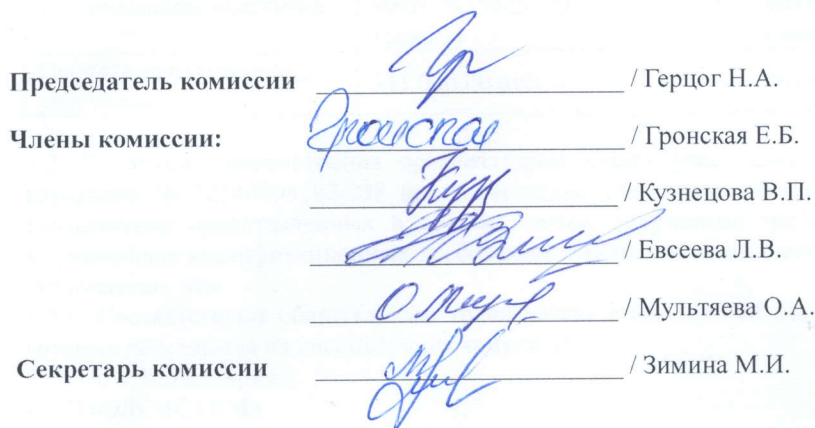 Председатель комиссии / Герцог Н.А.
Члены комиссии: Гронская / Гронская Е.Б.
/ Кузнецова В.П.
/ Евсеева Л.В.
/ Мультяева О.А.
Секретарь комиссии / Зимина М.И.